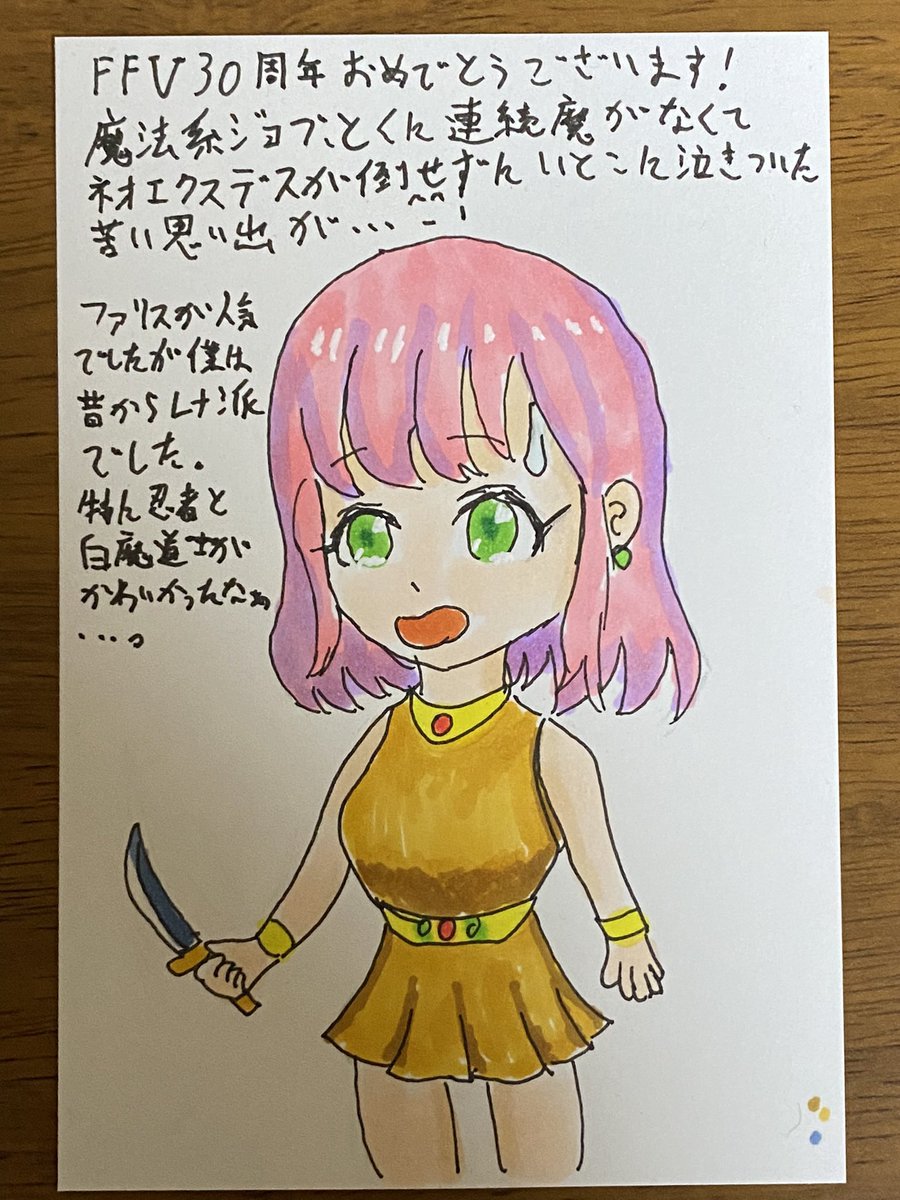 FFV30周年おめでとうございます!
魔法系ジョブ、とくに連続魔がなくて
ネオエクスデスが倒せずんいとこに泣きついた
苦い思い出が…
ファリスが人気
でしたが僕は
昔からレナ派
でした。
特に忍者と
白魔道士が
かわいかったなぁ
…。